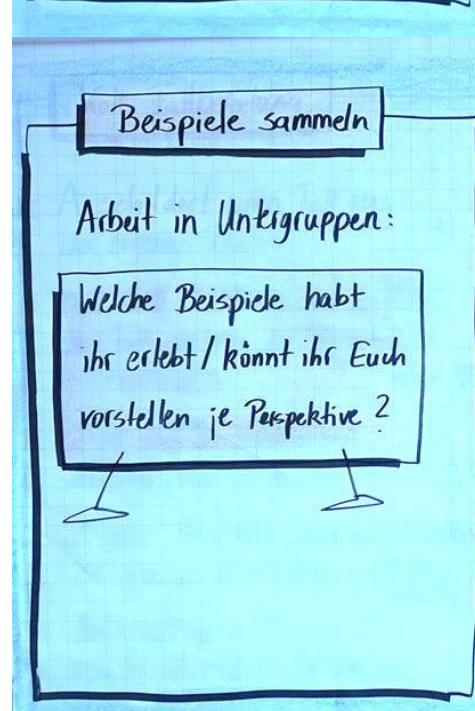 Beispiele sammeln
Arbeit in Untergruppen:
Welche Beispiele habt
ihr erlebt / könnt ihr Euch
vorstellen je Perspektive ?